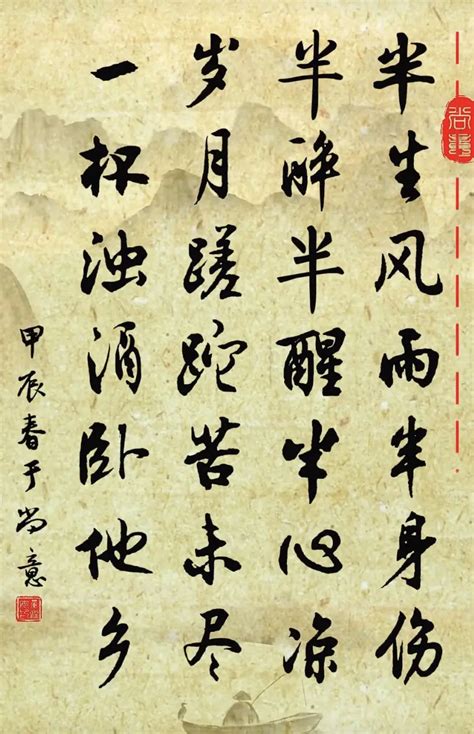 半生风雨半身伤
半醉半醒半心凉
岁月蹉跎苦未尽
一杯浊酒卧他乡
甲辰春于尚意